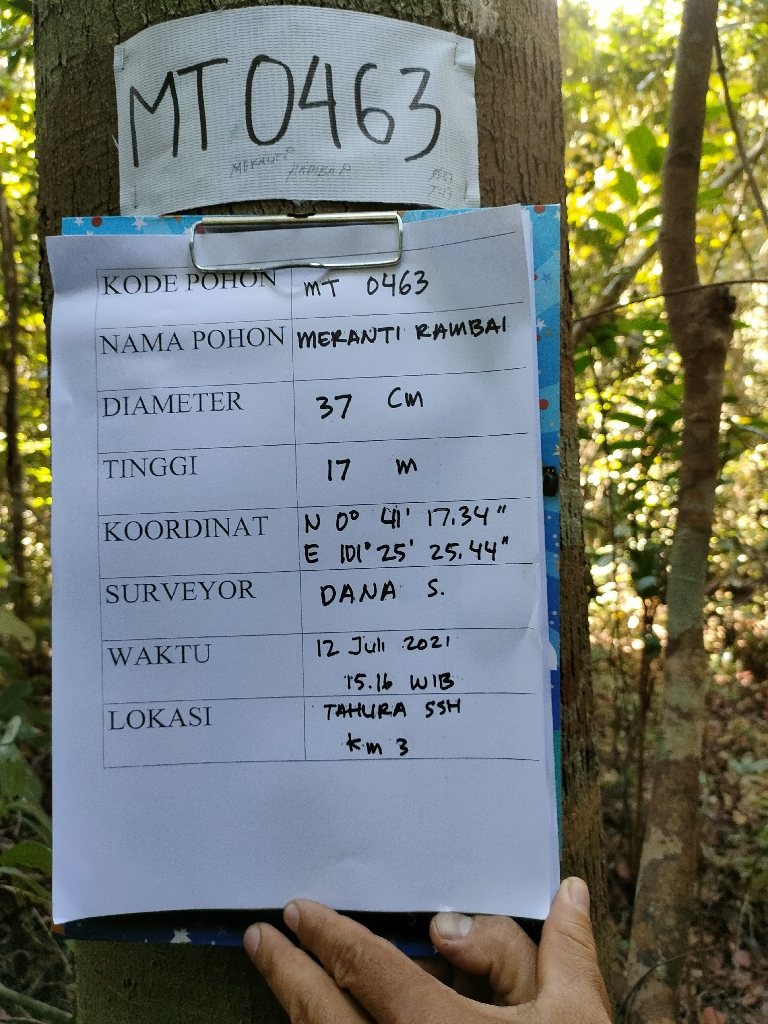 MT 0463
MERANTI
RAMBAI
KODE POHON MT 0463
NAMA POHON MERANTI RAMBAI
DIAMETER 37 Cm
TINGGI 17 m
KOORDINAT N 0° 41' 17.34"
E 101° 25' 25.44"
SURVEYOR DANA S.
WAKTU 12 Juli 2021
15.16 WIB
LOKASI TAHURA SSH
Km 3